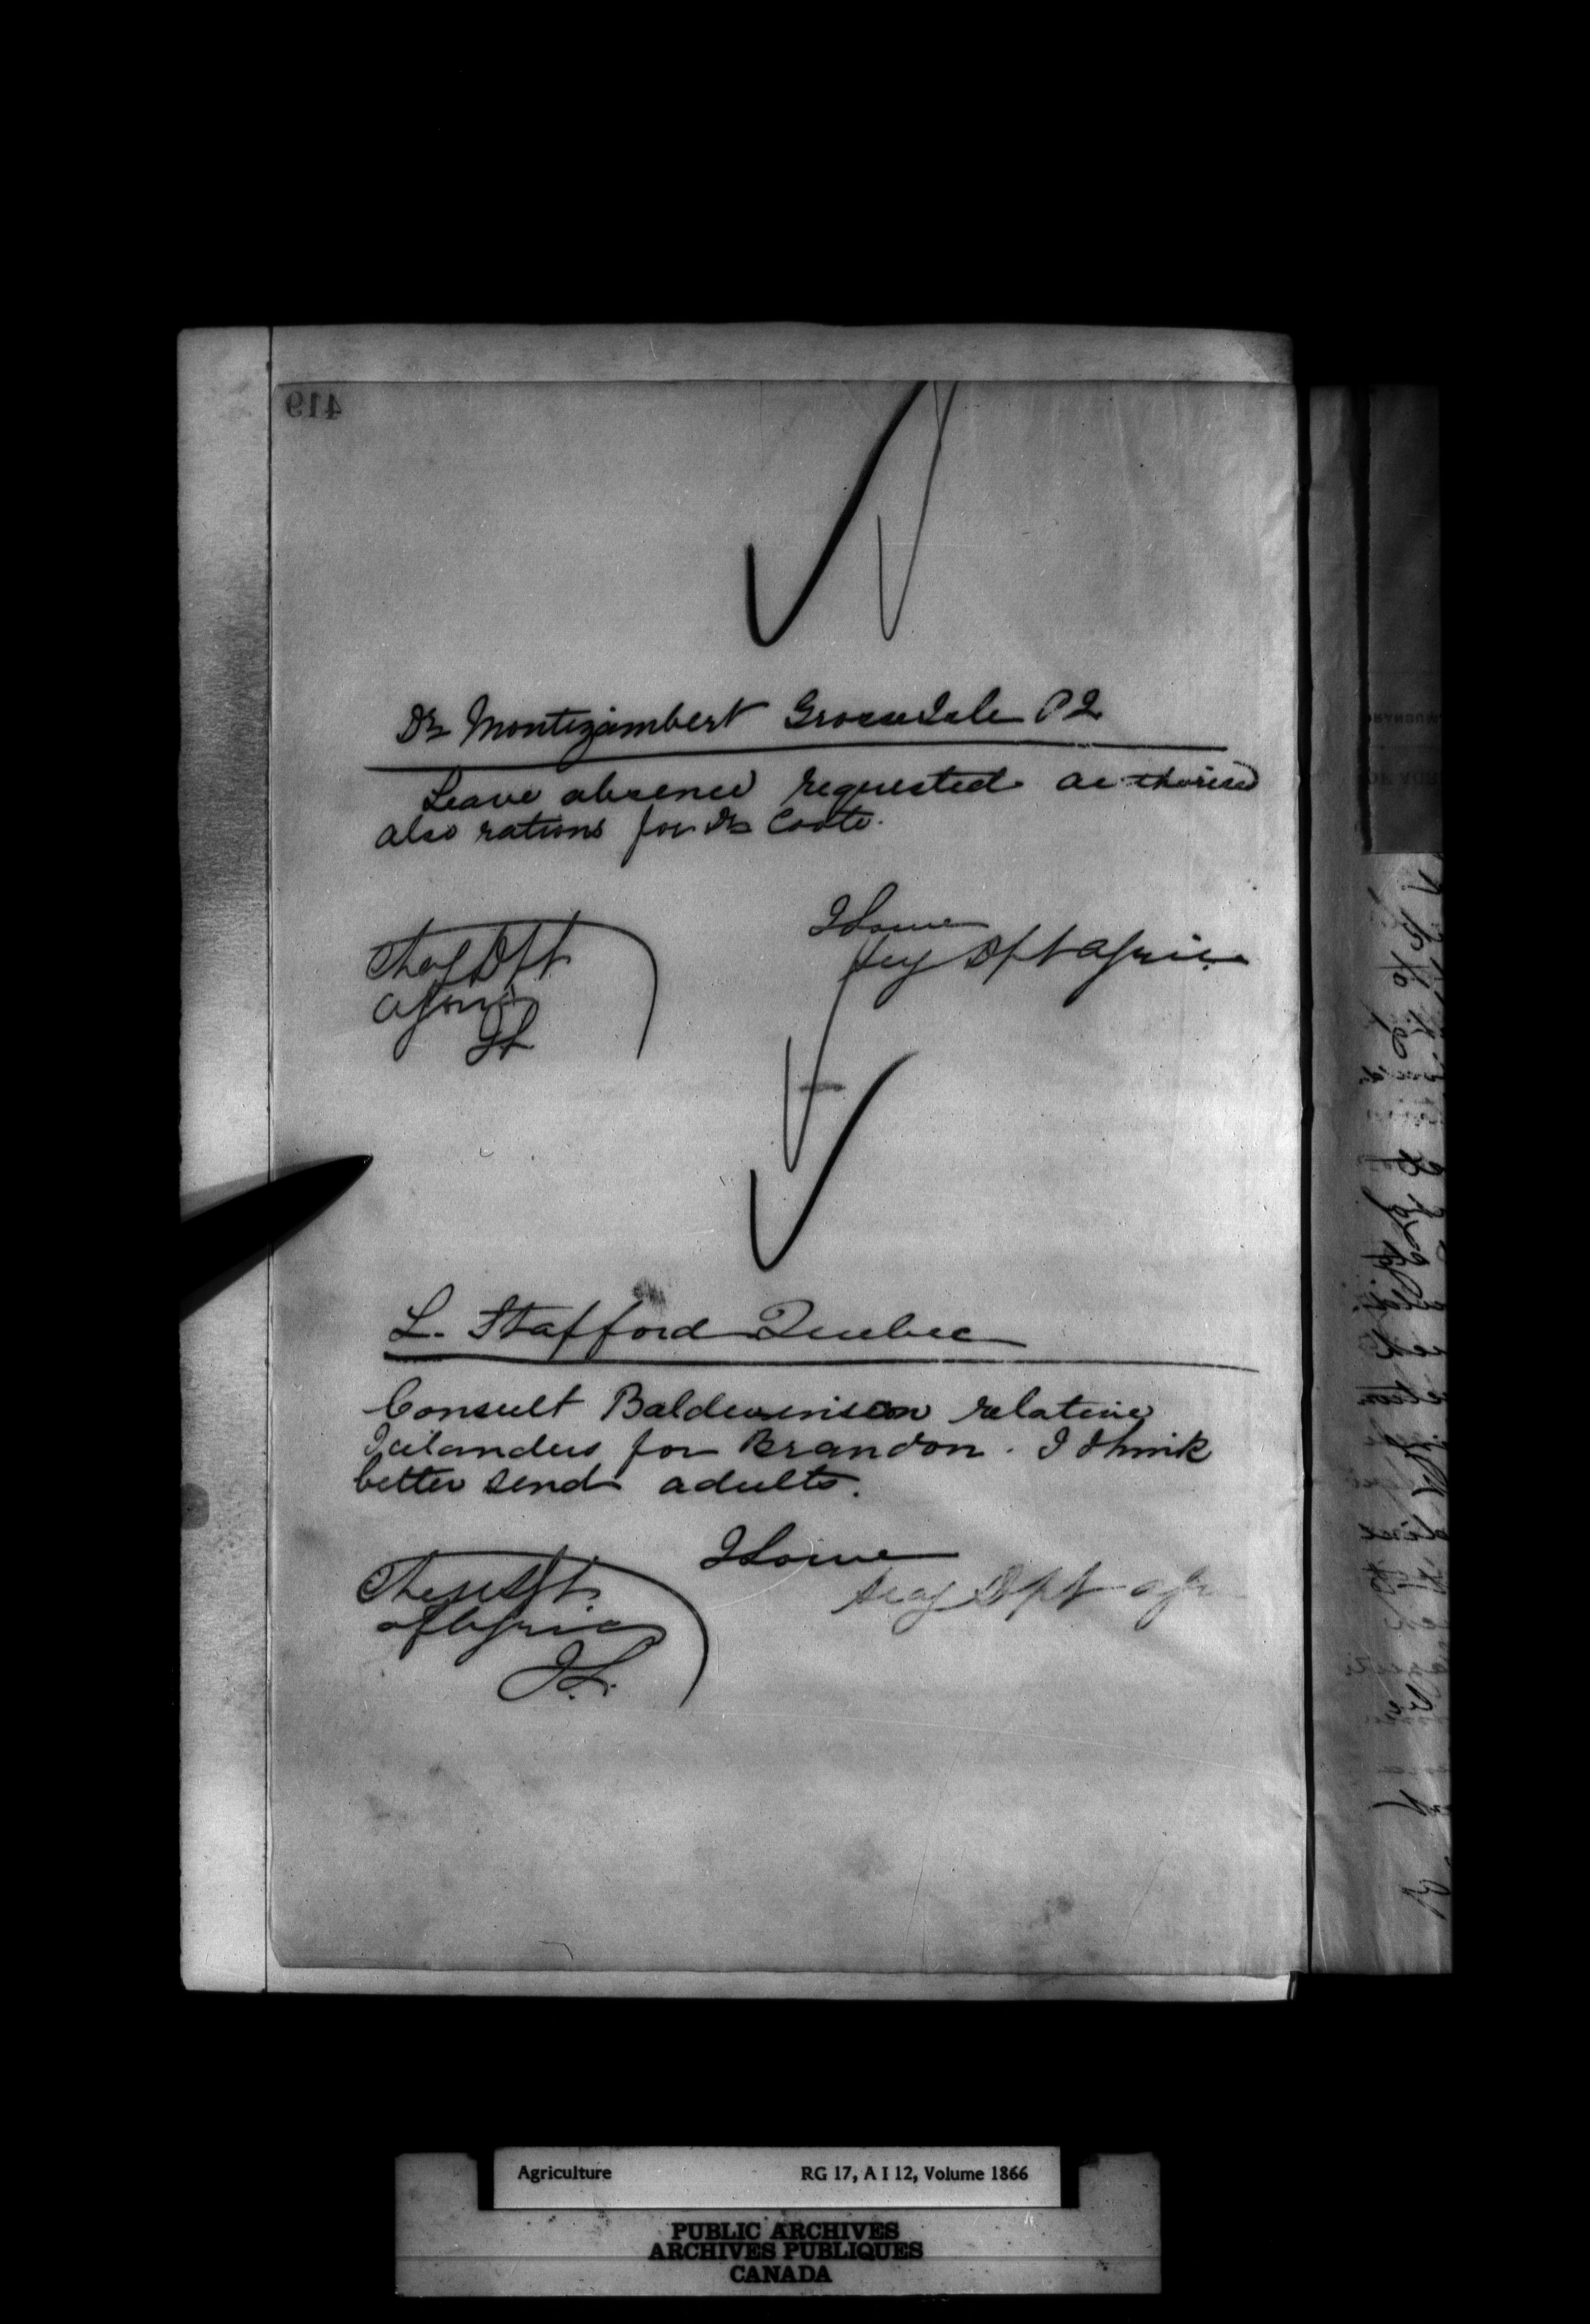 419
Dr Montizambert Grosse Isle P2
Leave absence requested authorised
also rations for Dr Coote.
J Lowe
Secy Dpt Agric
Chag Dpt
Agric
JL
L. Stafford Quebec
Consult Baldwinson relative
Icelanders for Brandon. I think
better send adults.
J Lowe
Secy Dpt Agr
Dpt
of Agric
J.L.
Agriculture RG 17, A I 12, Volume 1866
PUBLIC ARCHIVES
ARCHIVES PUBLIQUES
CANADA